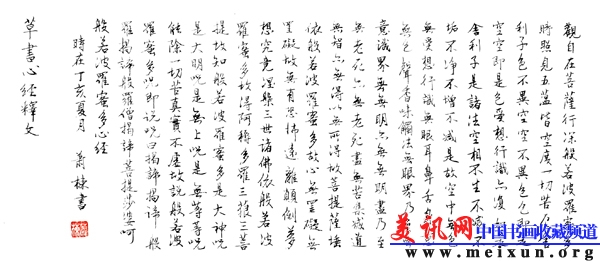 觀自在菩薩行深般若波羅蜜多
時照見五蘊皆空度一切苦厄舍
利子色不異空空不異色色即是
空空即是色受想行識亦復如是
舍利子是諸法空相不生不滅不
垢不净不增不減是故空中無色
無受想行識無眼耳鼻舌身意
無色聲香味觸法無眼界乃至無
意識界無無明亦無無明盡乃至
無老死亦無老死盡無苦集滅道
無智亦無得以無所得故菩提薩埵
依般若波羅蜜多故心無罣礙無
罣礙故無有恐怖遠離顛倒夢
想究竟涅槃三世諸佛依般若波
羅蜜多故得阿耨多羅三藐三菩
提故知般若波羅蜜多是大神咒
是大明咒是無上咒是無等等咒
能除一切苦真實不虛故說般若波
羅蜜多咒即說咒曰揭諦揭諦 般
羅揭諦般羅僧揭諦菩提莎婆呵
般若波羅蜜多心經
時在丁亥夏月 蕭棟書
草書心經釋文
美讯网 中国书画收藏频道
www.meixun.org